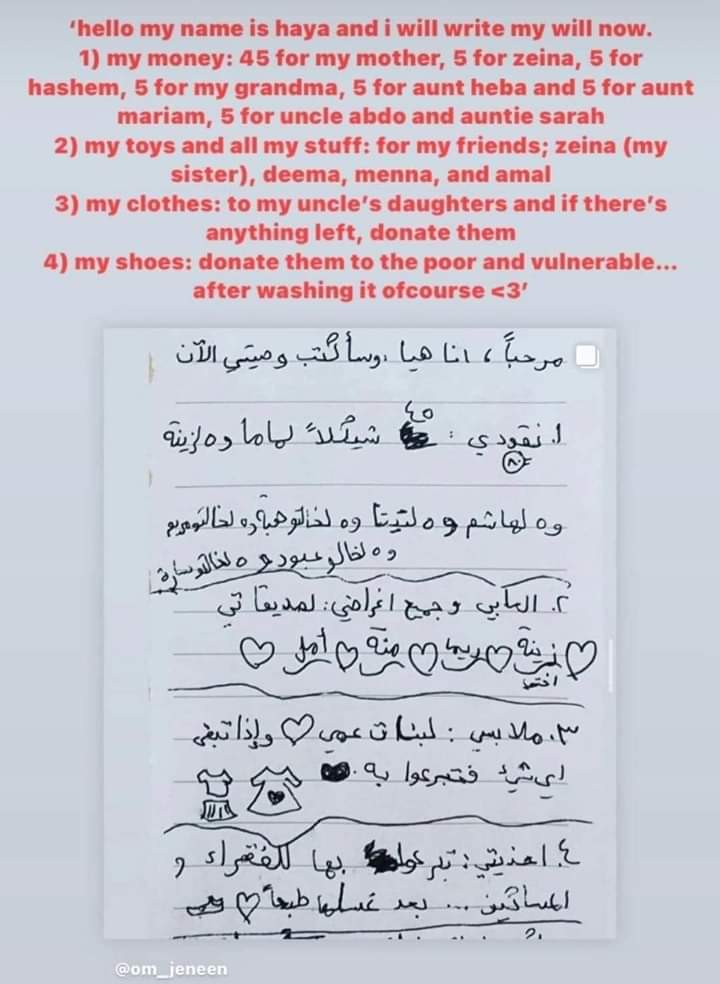 ‘hello my name is haya and i will write my will now.
1) my money: 45 for my mother, 5 for zeina, 5 for
hashem, 5 for my grandma, 5 for aunt heba and 5 for aunt
mariam, 5 for uncle abdo and auntie sarah
2) my toys and all my stuff: for my friends; zeina (my
sister), deema, menna, and amal
3) my clothes: to my uncle’s daughters and if there’s
anything left, donate them
4) my shoes: donate them to the poor and vulnerable...
after washing it ofcourse <3’
مرحباً، انا هيا، وسأكتب وصيتي الآن
٤٥
١. نقودي: شيكلاً لماما و٥ لزينة
٨٠
و٥ لهاشم و٥ لتيتا و٥ لخالتو هبة و٥ لخالتو مريم
و٥ لخالو عبود و٥ لخالتو سارة
٢. العابي وجميع اغراضي: لصديقاتي
زينة ريما منة أمل
اختي
٣. ملابسي: لبنات عمي وإذا تبقى
اي شيء فتبرعوا به.
٤. احذيتي: تبرعوا بها للفقراء و
المساكين... بعد غسلها طبعاً
@om_jeneen